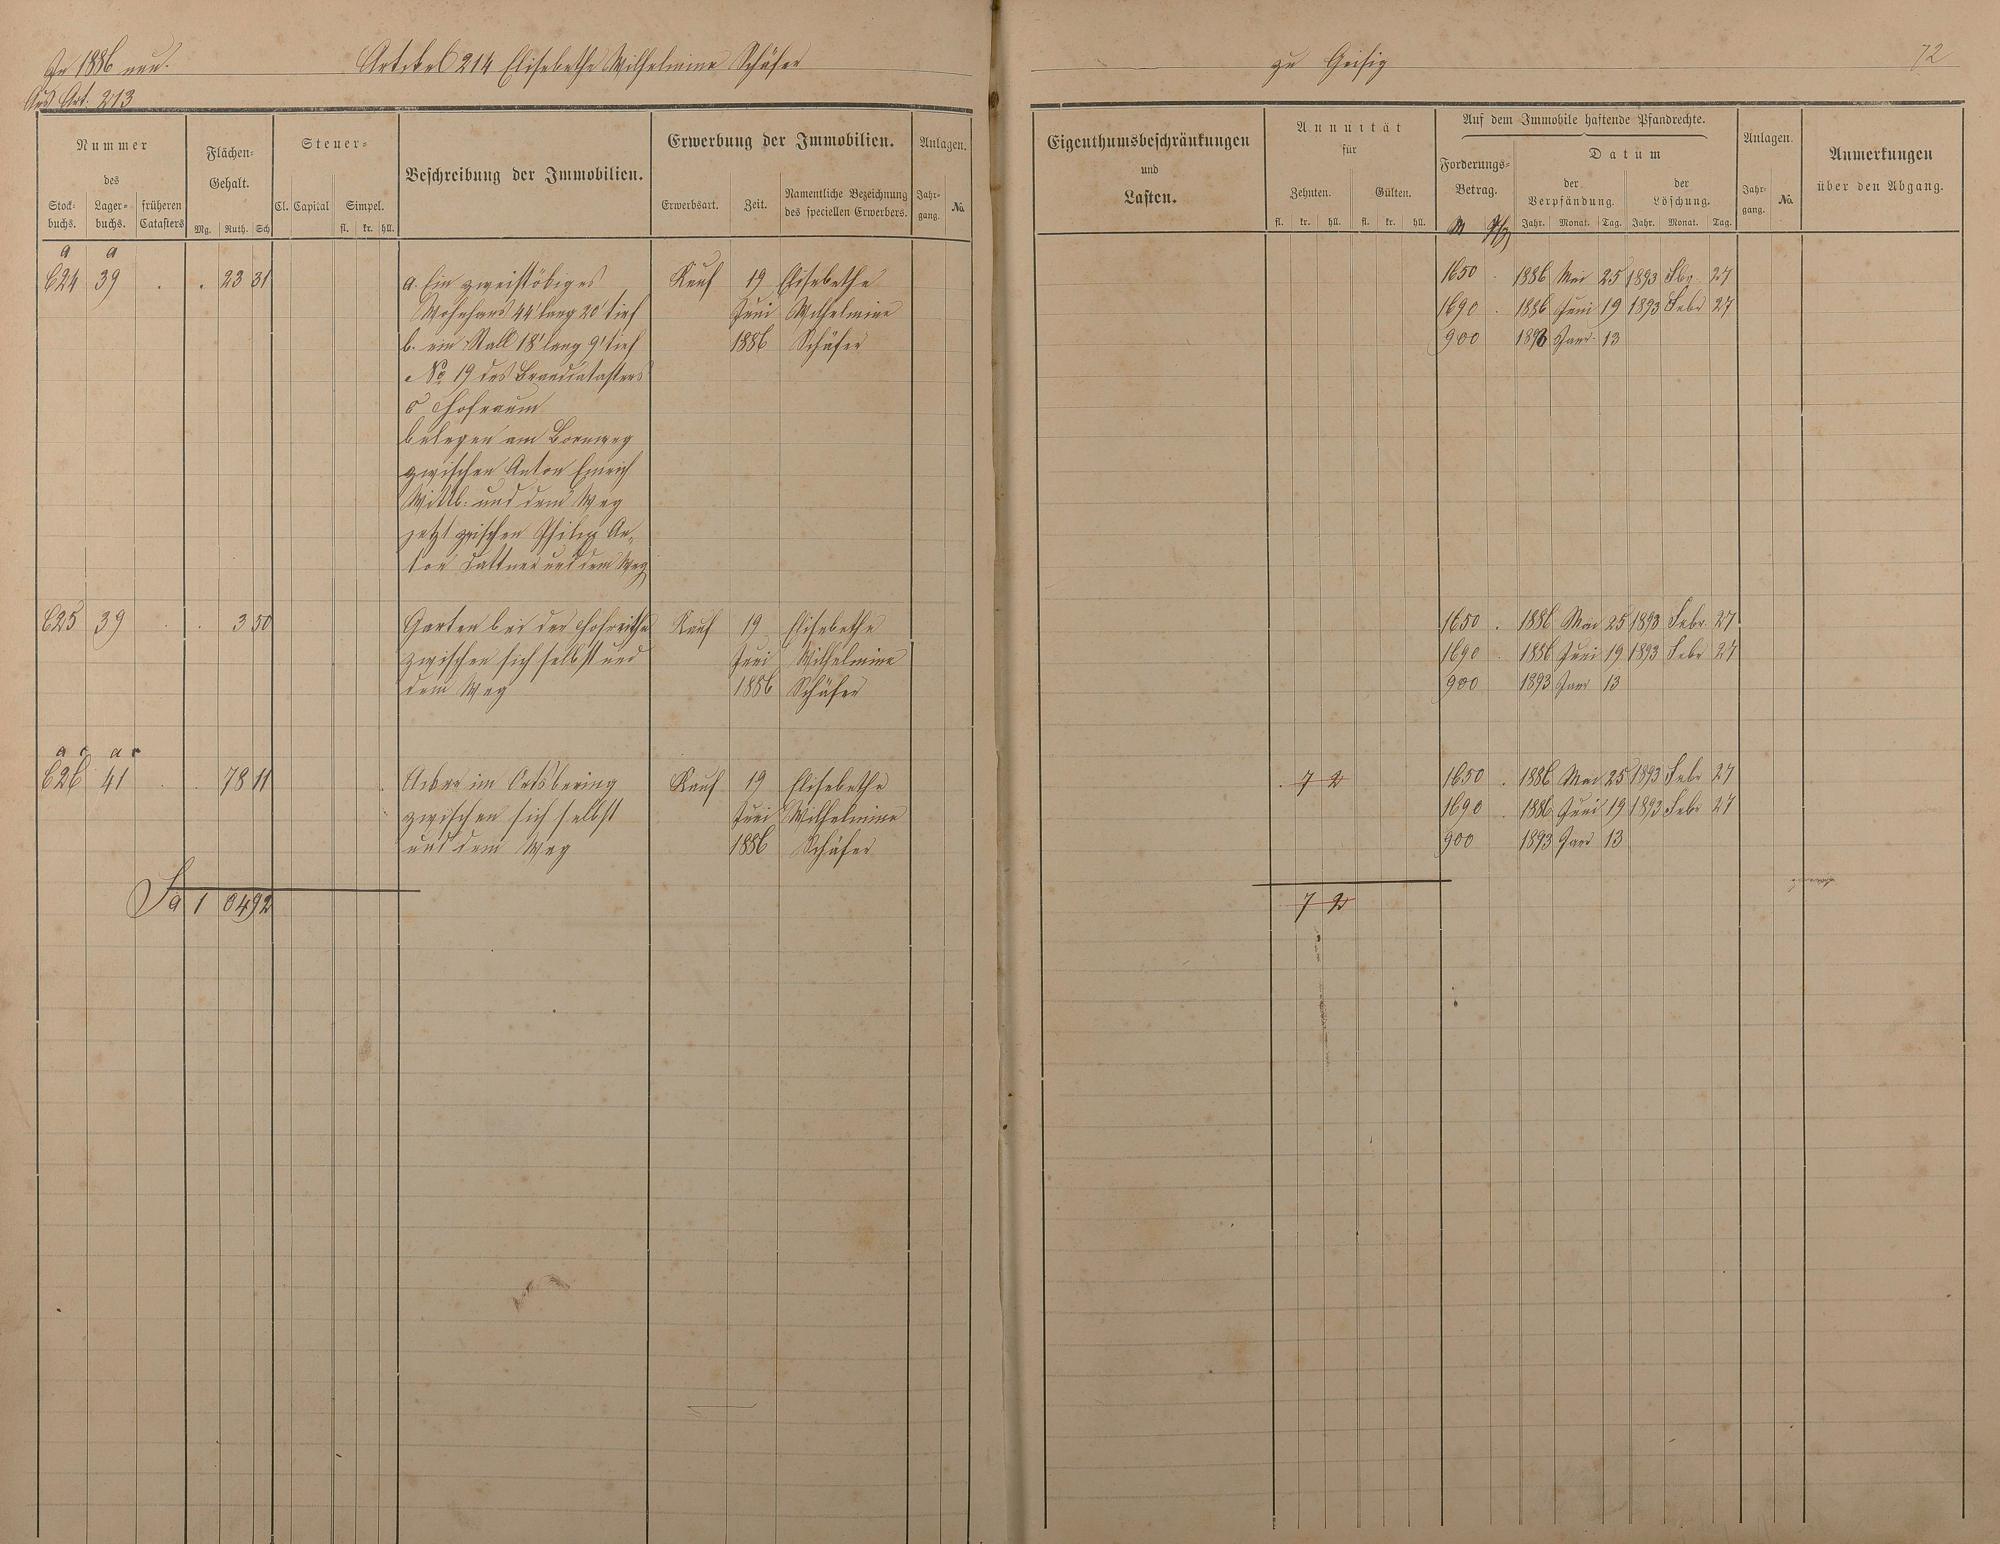 In 1886 neu.
Artikel 214 Elisabethe Wilhelmine Schäfer
Aus Art. 213
zu Geisig
72
Nummer
des
Stock-
buchs.
Lager-
buchs.
früheren
Catasters
Flächen-
Gehalt.
Mg. Ruth. Sch
Steuer-
Cl. Capital Simpel.
fl. kr. hll.
Beschreibung der Immobilien.
Erwerbung der Immobilien.
Erwerbsart. Zeit. Namentliche Bezeichnung
des speciellen Erwerbers.
Anlagen.
Jahr-
gang. No.
Eigenthumsbeschränkungen
und
Lasten.
Annuität
für
Zehnten. Gülten.
fl. kr. hll. fl. kr. hll.
Auf dem Immobile haftende Pfandrechte.
Forderungs-
Betrag.
Datum
der
Verpfändung.
der
Löschung.
Jahr. Monat. Tag. Jahr. Monat. Tag.
Anlagen.
Jahr-
gang. No.
Anmerkungen
über den Abgang.
a a
624 39 . . 23 31 a. Ein zweistöckiges Kauf 19 Elisabethe
Wohnhaus 44' lang 20' tief Juni Wilhelmine
b. ein Stall 18' lang 9' tief 1886 Schäfer
No 19 des Brandcatasters
c Hofraum
belegen am Bornweg
zwischen Anton Emrich
Wittb: und dem Weg
jetzt zwischen Philip An-
ton Lattner und dem Weg
1650 . 1886 Mai 25 1893 Fbr. 27
1690 . 1886 Juni 19 1893 Febr 27
900 1893 Janr. 13
625 39 . . 3 50 Garten bei der Hofreithe Kauf 19 Elisabethe
zwischen sich selbst und Juni Wilhelmine
dem Weg 1886 Schäfer
1650 . 1886 Mai 25 1893 Febr. 27
1690 . 1886 Juni 19 1893 Febr 27
900 1893 Janr 13
a c a c
626 41 . . 78 11 Acker im Ortsbering Kauf 19 Elisabethe
zwischen sich selbst Juni Wilhelmine
und dem Weg 1886 Schäfer
. 7 2 1650 . 1886 Mai 25 1893 Febr 27
1690 . 1886 Juni 19 1893 Febr 27
900 1893 Janr 13
Sa 1 04 92
7 2